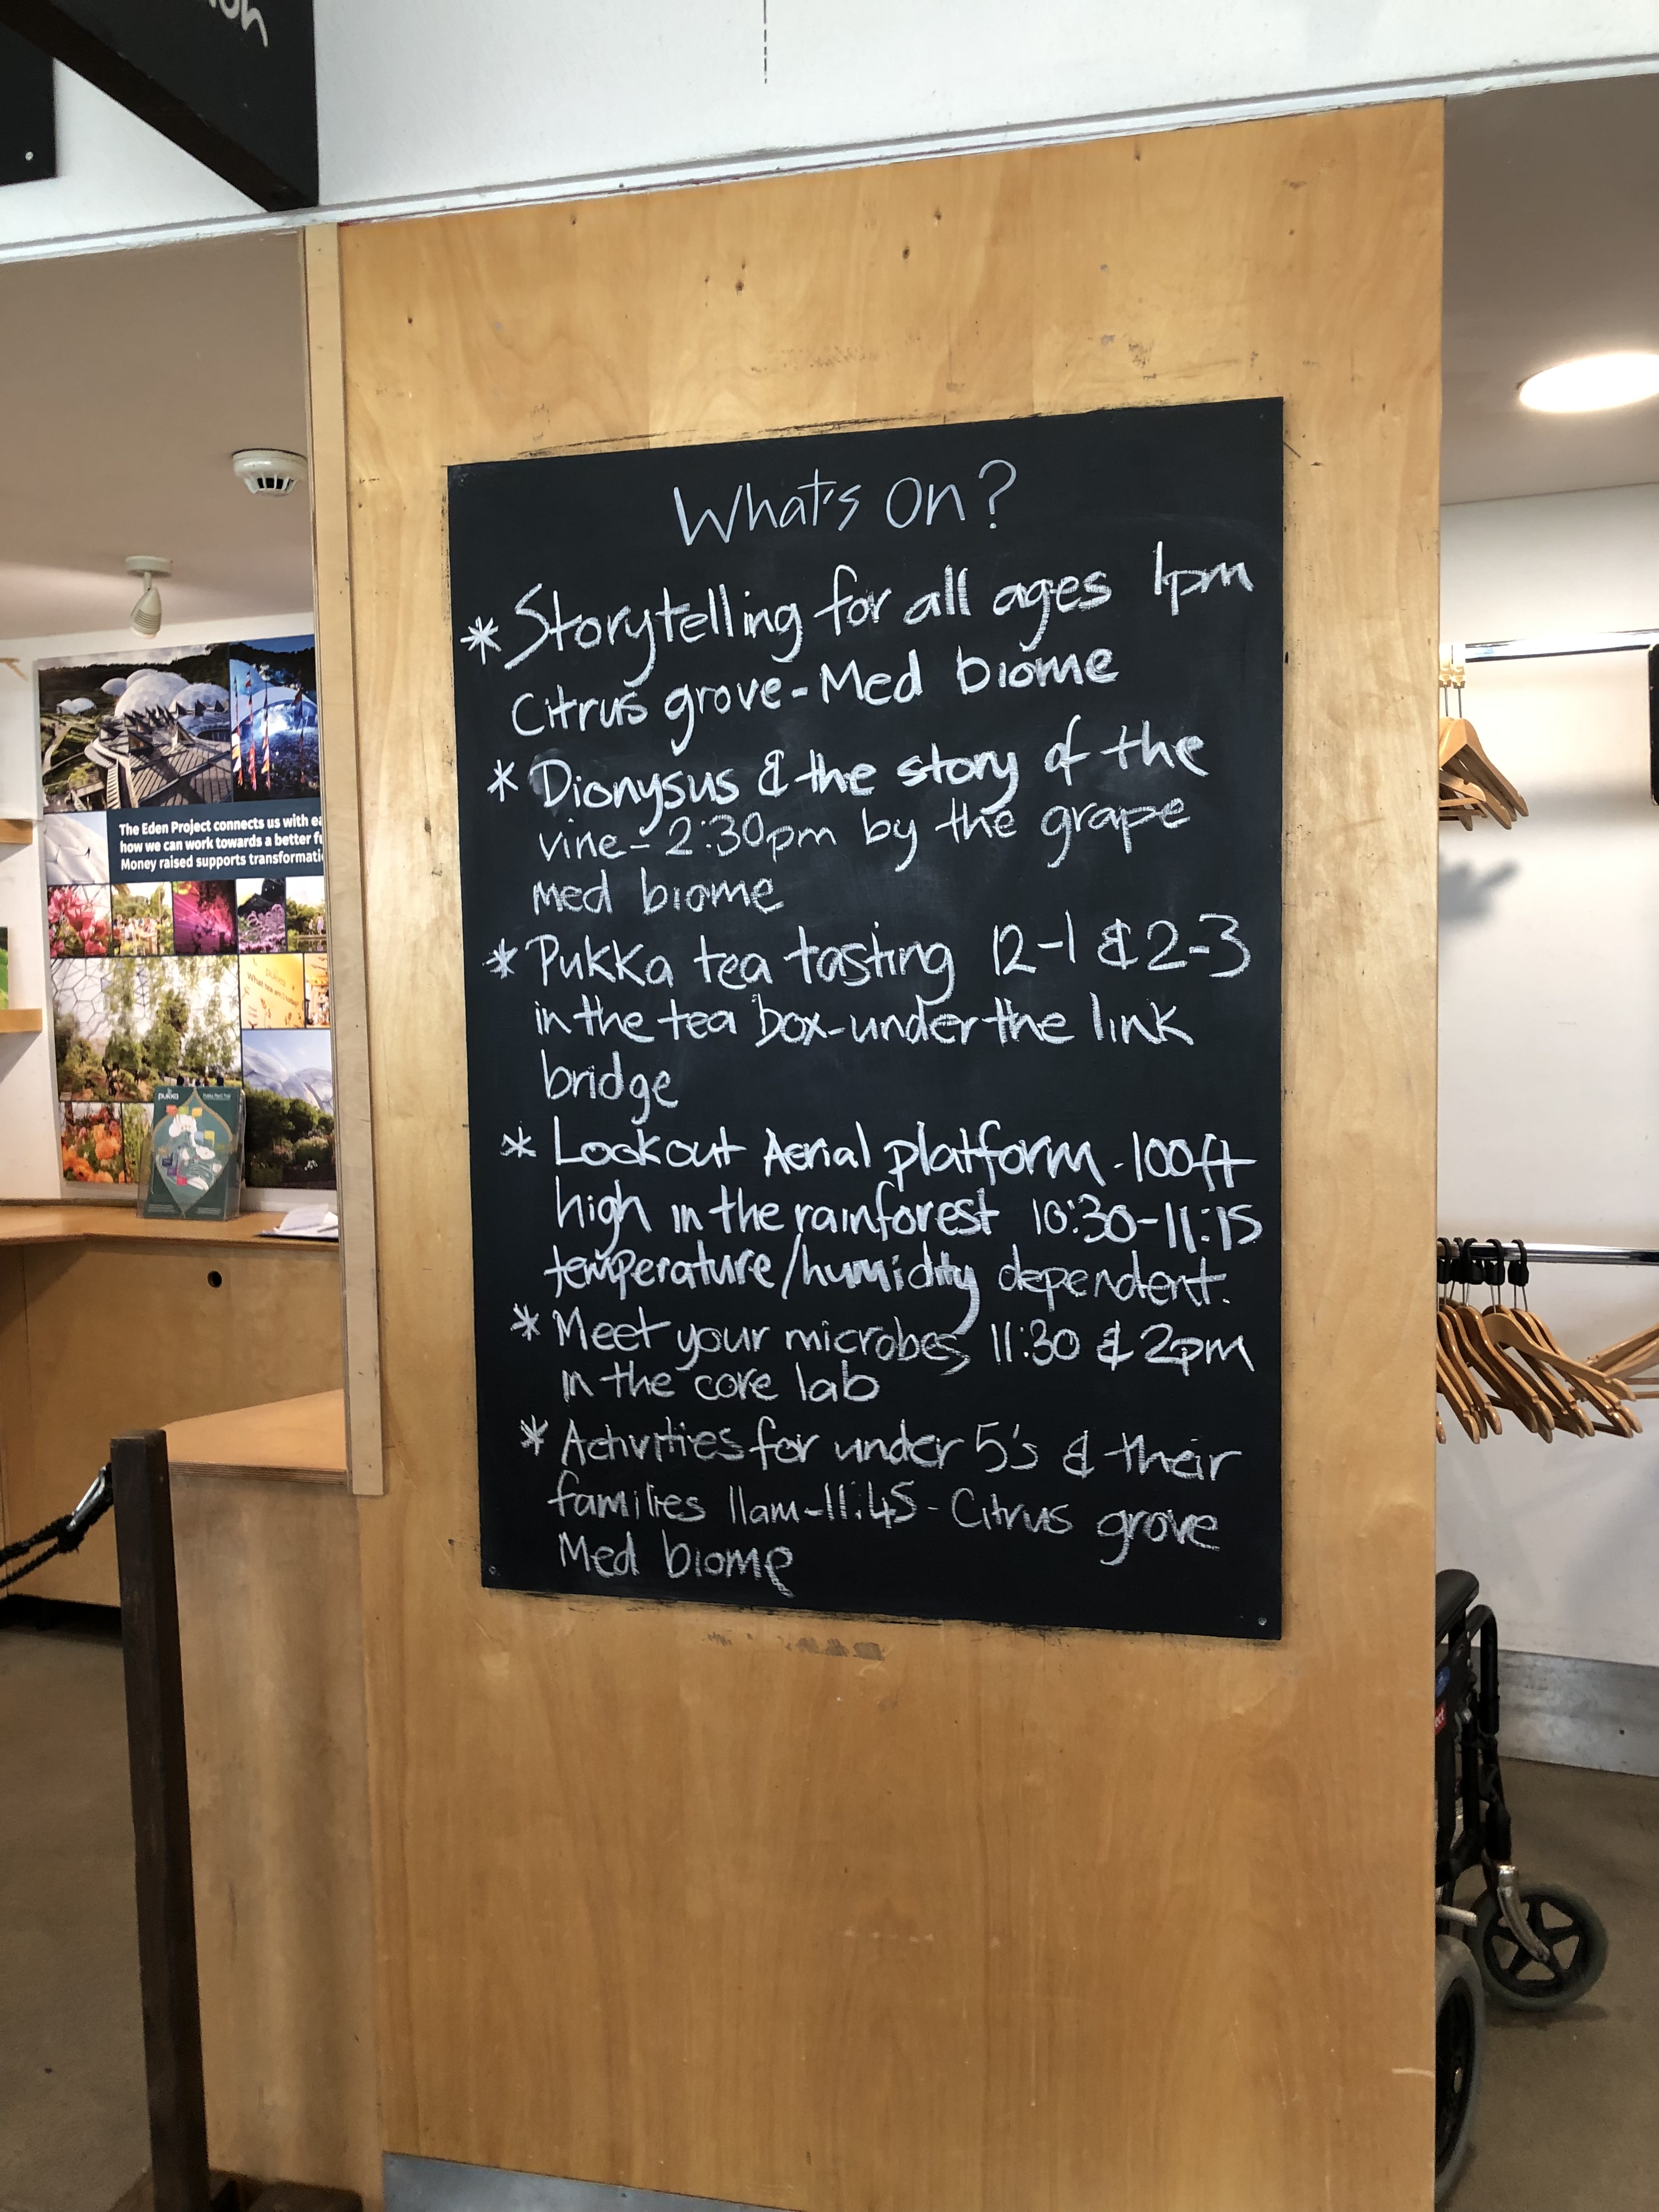 What's On?
* Storytelling for all ages 1pm
Citrus grove - Med biome
* Dionysus & the story of the
vine - 2:30pm by the grape
med biome
* Pukka tea tasting 12-1 & 2-3
in the tea box - under the link
bridge
* Lookout Aerial platform - 100ft
high in the rainforest 10:30-11:15
temperature/humidity dependent.
* Meet your microbes 11:30 & 2pm
in the core lab
* Activities for under 5's & their
families 11am-11:45 - Citrus grove
Med biome
The Eden Project connects us with
how we can work towards a better
Money raised supports
pukka